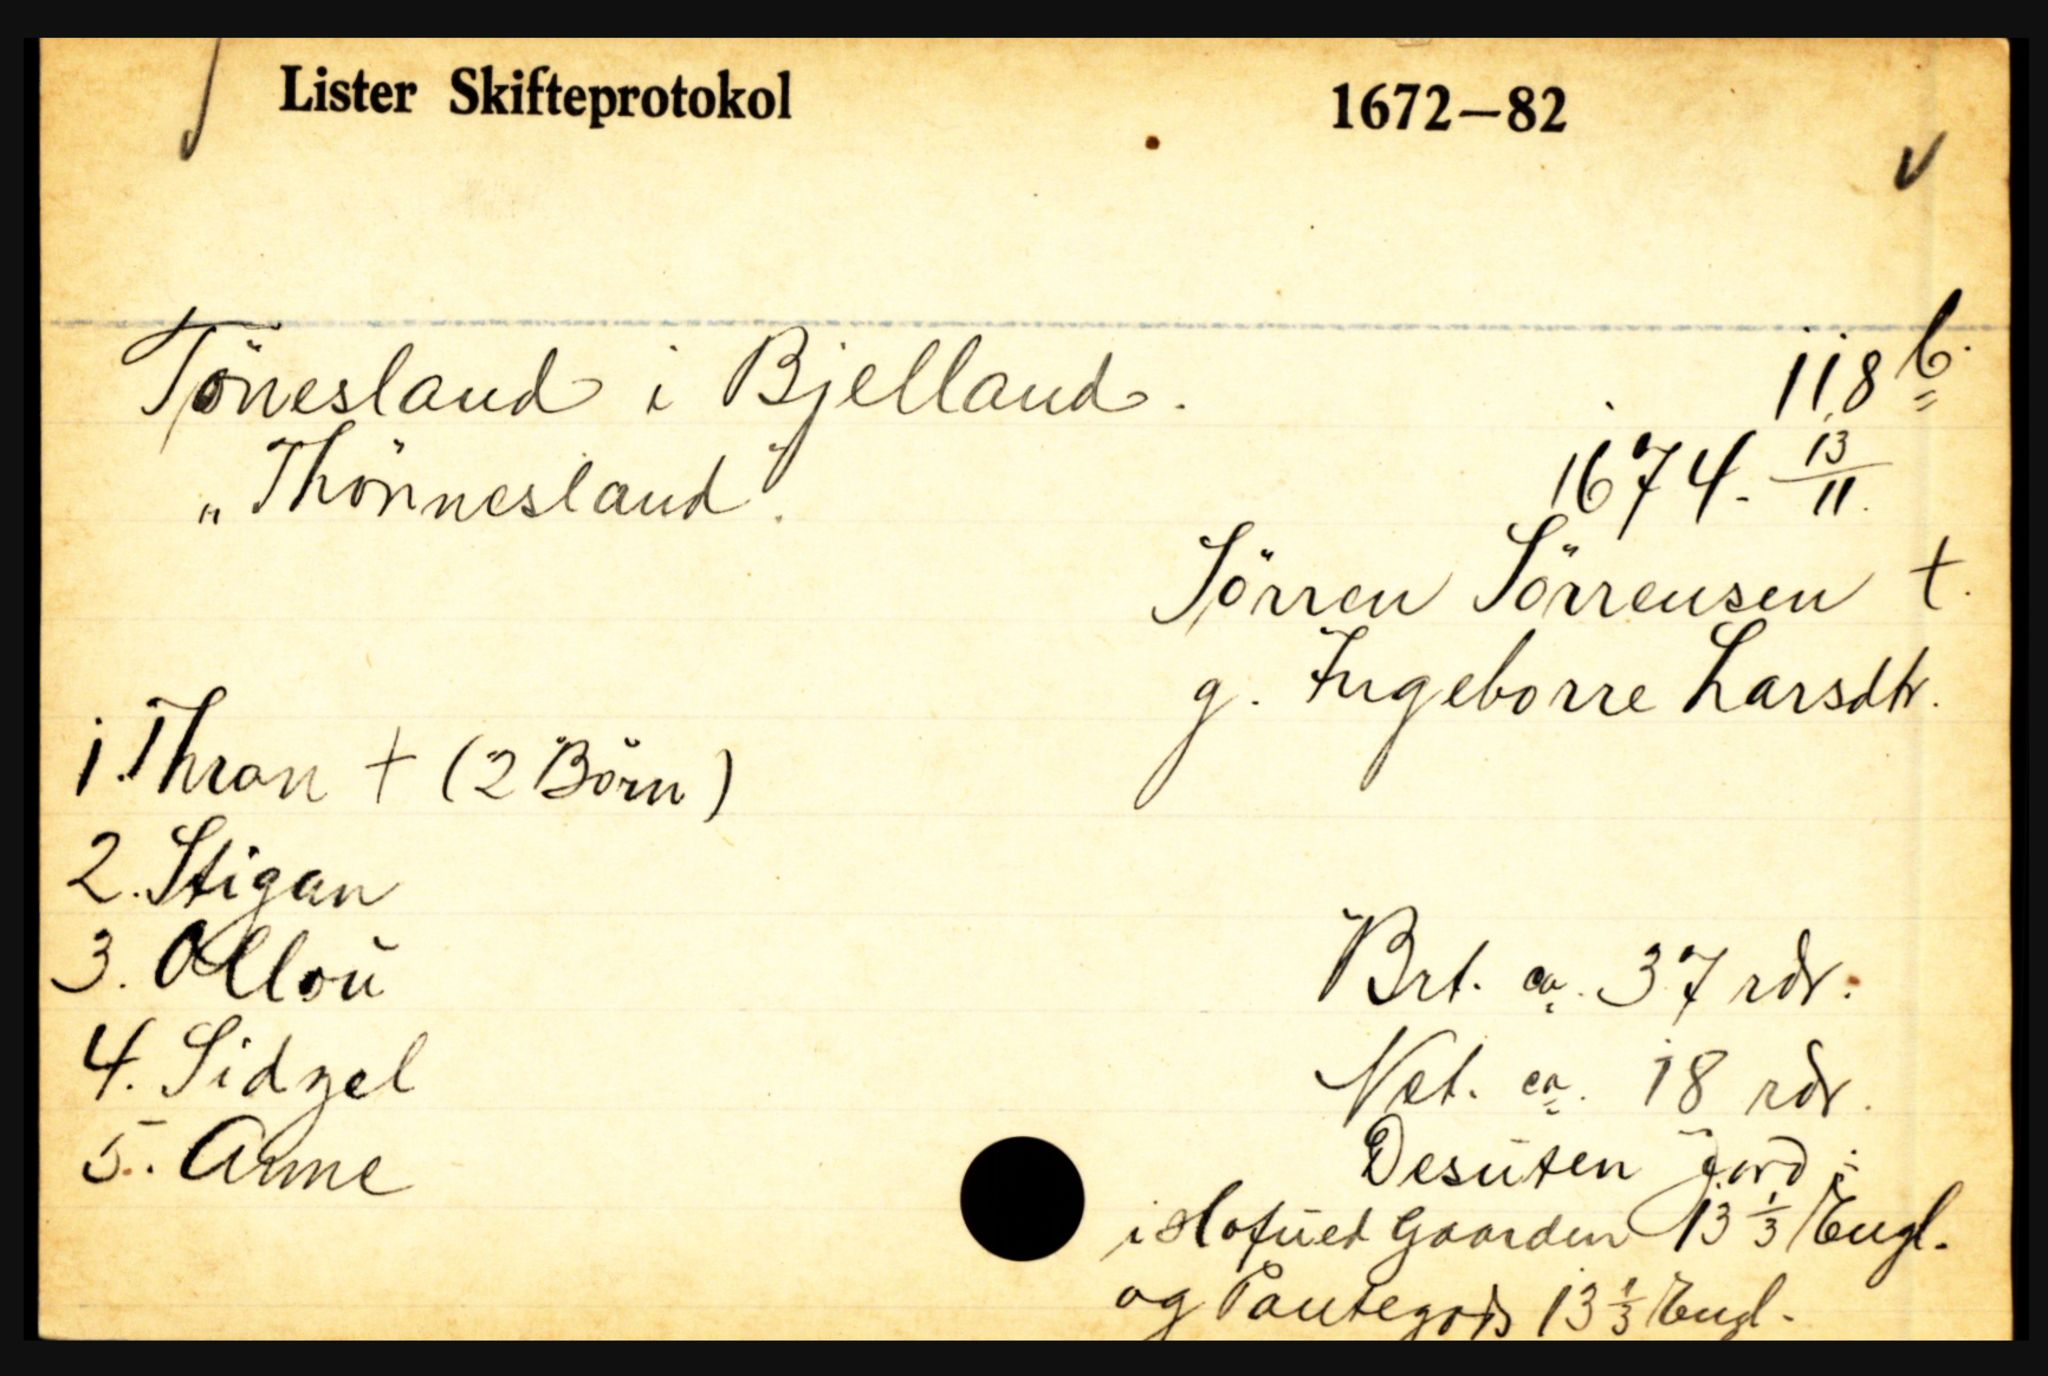 Lister Skifteprotokol 1672—82
Tönesland i Bjelland. 118 b.
„Thönnesland". 1674. 13/11.
Sörren Sörrensen †.
g. Ingeborre Larsdtr.
1. Thron † (2 Börn)
2. Stigan
3. Ollou
4. Sidzel
5. Anne
Brt. ca. 37 rdr.
Net. ca. 18 rdr.
Desuten Jord i
i Hofued Gaarden 13 1/3 Engl.
og Pantegods 13 1/3 Engl.